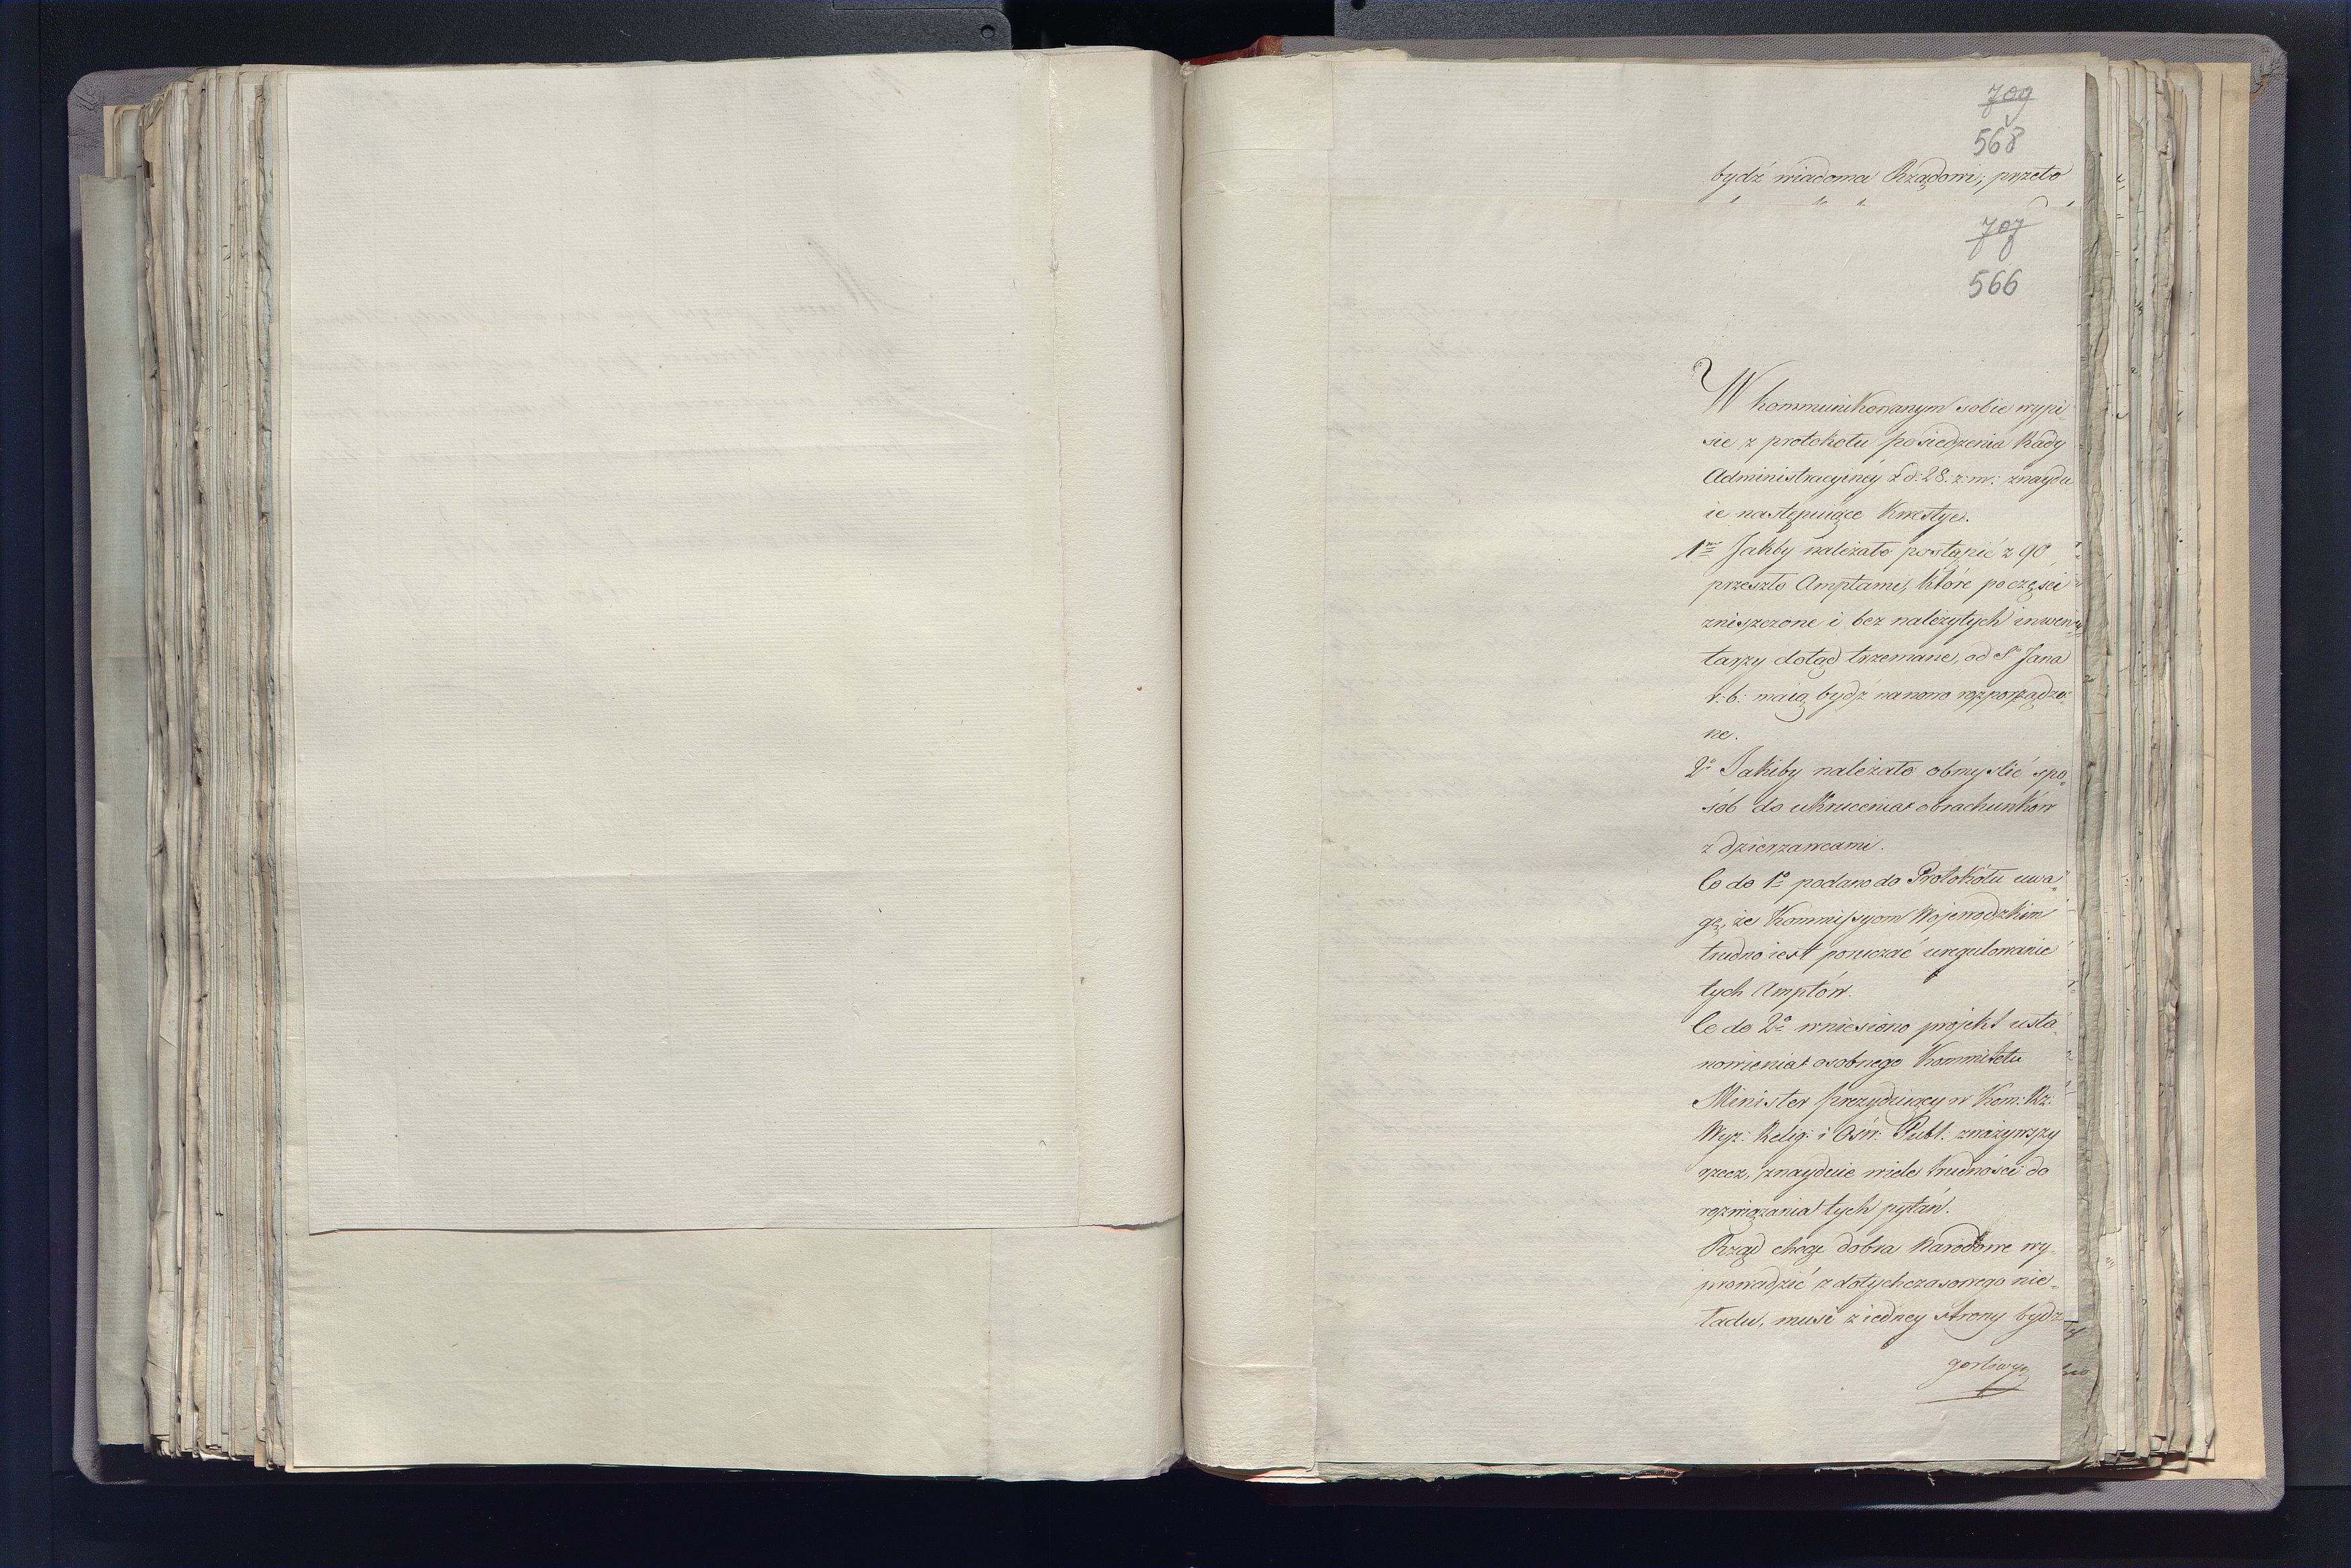 709
568
bydź wiadoma Rządowi; przeto
707
566
W kommunikowanym sobie wypi-
sie z protokołu posiedzenia Rady
Administracyiney z d: 28. z: m: znaydu
ie następuiące kwestye.
1mo Jakby należało postąpić z 90
przeszło Amptami, które po części
zniszczone i bez należytych inwen-
tarzy dotąd trzemane, od Sgo Jana
r: b: maią bydź na nowo rozporządzo-
ne.
2o Jakiby należało obmyślić spo-
sób do ukrucenia obrachunków
z dzierzawcami.
Co do 1o podano do Protokółu uwa-
gę, że Kommissyom Wojewodzkim
trudno iest poruczać uregulowanie
tych Amptów.
Co do 2o wniesiono projekt usta-
nowienia osobnego Kommitetu
Minister prezyduiący w Kom: Rz:
Wyz: Relig: i Ośw: Publ: zważywszy
rzecz, znayduie wiele trudności do
rozwiązania tych pytań.
Rząd chcąc dobra Narodowe wy-
prowadzić z dotychczasowego nie-
ładu, musi z iedney strony bydz